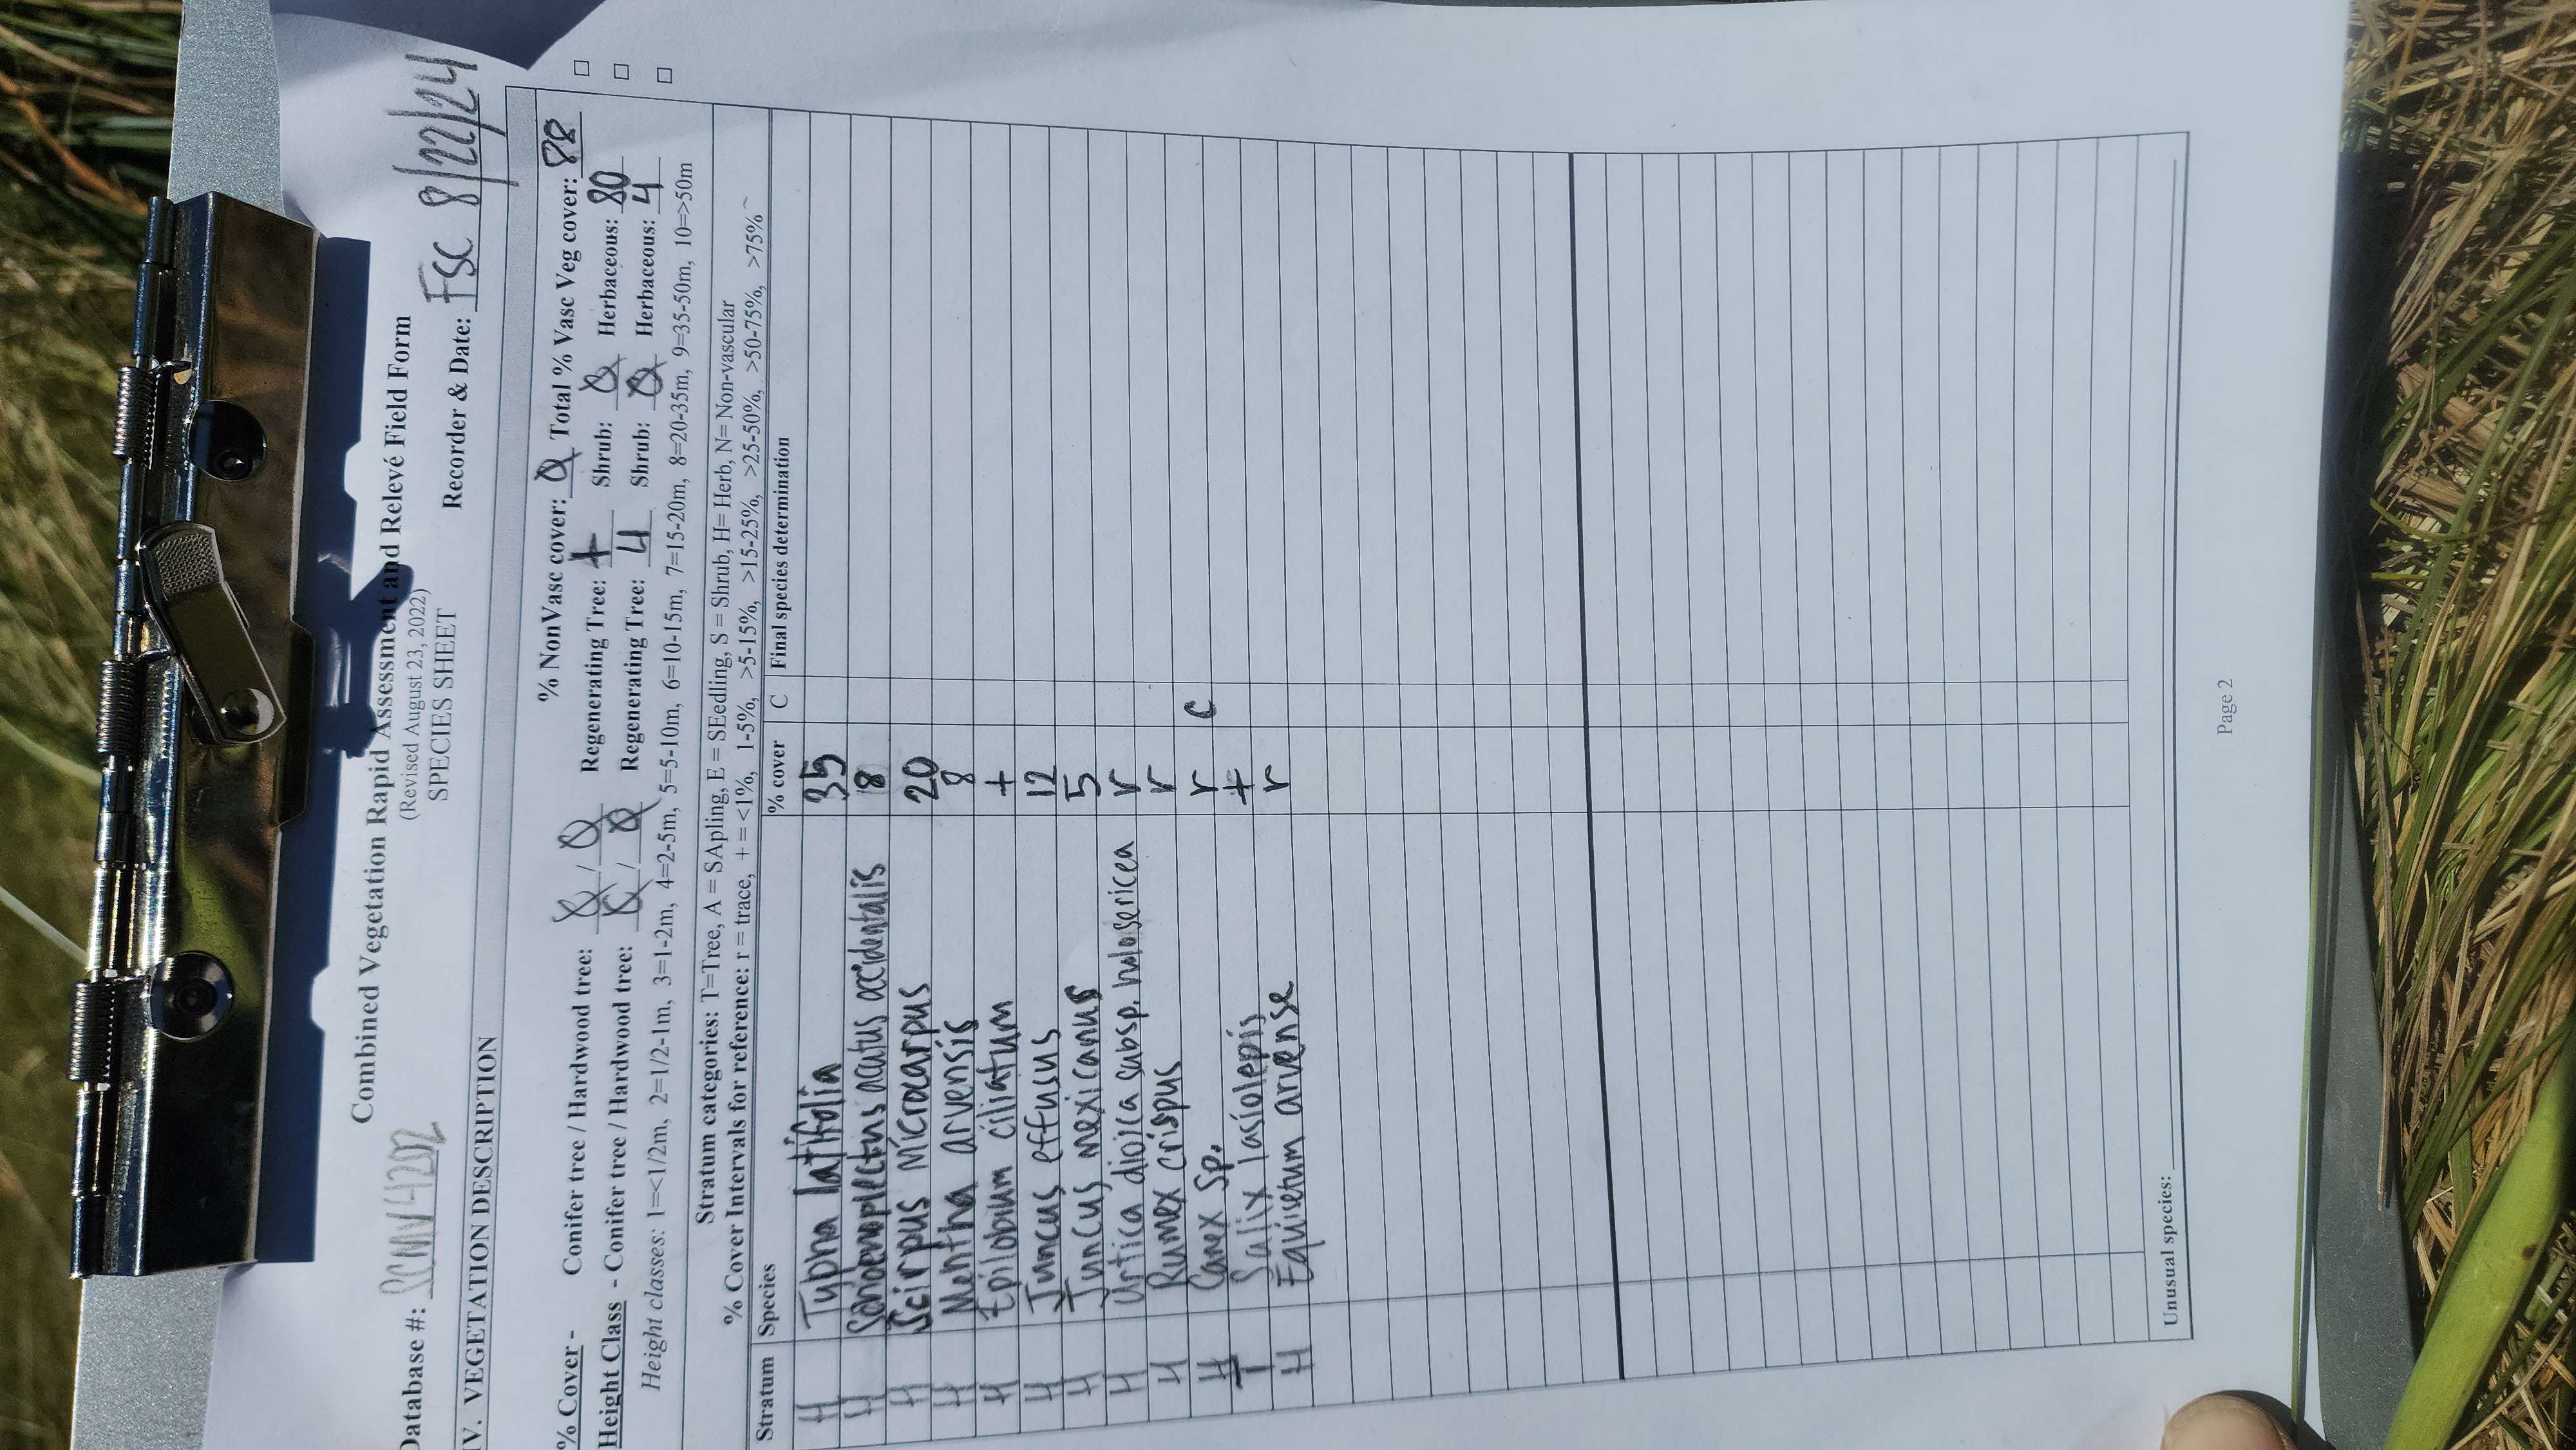 Combined Vegetation Rapid Assessment and Relevé Field Form
(Revised August 23, 2022)
Database #: SCMV4202 SPECIES SHEET Recorder & Date: FSC 8/22/24
IV. VEGETATION DESCRIPTION
% NonVasc cover: 0 Total % Vasc Veg cover: 88
% Cover - Conifer tree / Hardwood tree: 0 / 0 Regenerating Tree: + Shrub: 0 Herbaceous: 80
Height Class - Conifer tree / Hardwood tree: 0 / 0 Regenerating Tree: 4 Shrub: 0 Herbaceous: 4
Height classes: 1=<1/2m, 2=1/2-1m, 3=1-2m, 4=2-5m, 5=5-10m, 6=10-15m, 7=15-20m, 8=20-35m, 9=35-50m, 10=>50m
Stratum categories: T=Tree, A = SApling, E = SEedling, S = Shrub, H= Herb, N= Non-vascular
% Cover Intervals for reference: r = trace, + = <1%, 1-5%, >5-15%, >15-25%, >25-50%, >50-75%, >75%
Stratum Species % cover C Final species determination
H Typha latifolia 35
H Schoenoplectus acutus occidentalis 8
H Scirpus microcarpus 20
H Mentha arvensis 8
H Epilobium ciliatum +
H Juncus effusus 12
H Juncus mexicanus 5
H Urtica dioica subsp. holosericea r
H Rumex crispus r
H Carex sp. r C
T Salix lasiolepis +
H Equisetum arvense r
Unusual species:
Page 2